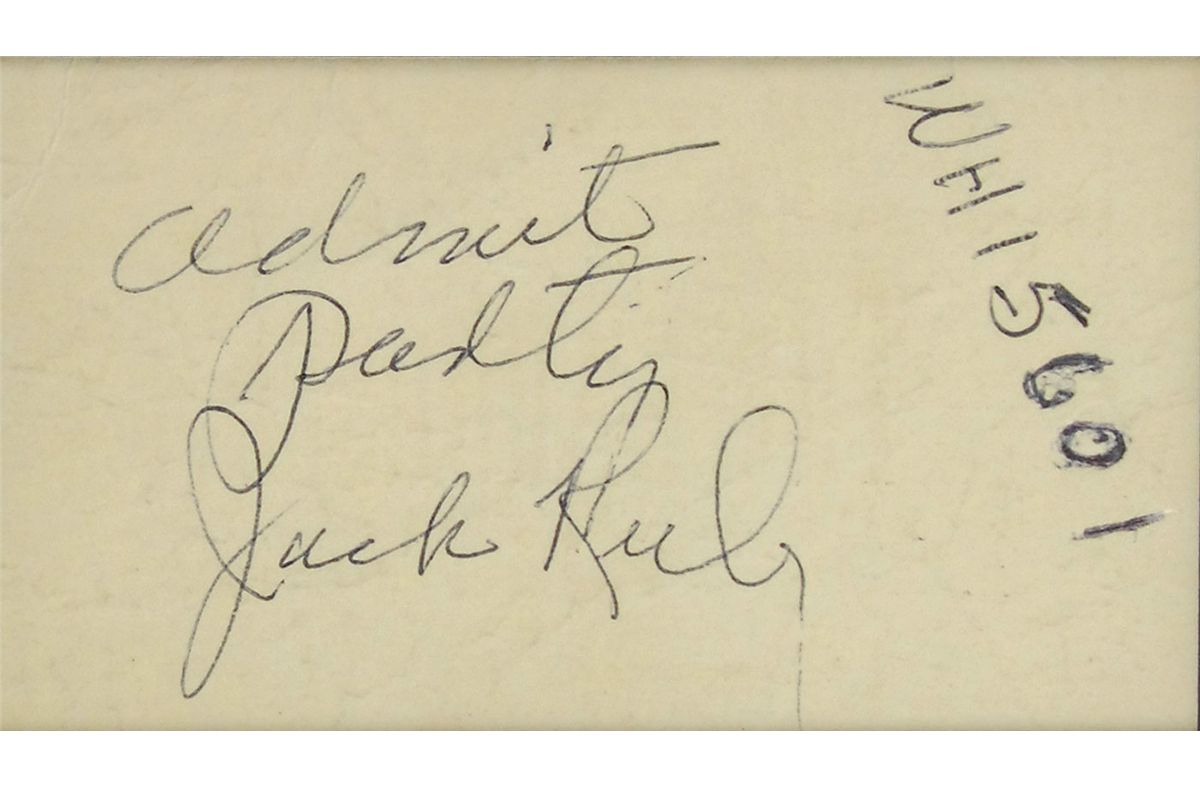 admit
Party
Jack Ruby
WH15601